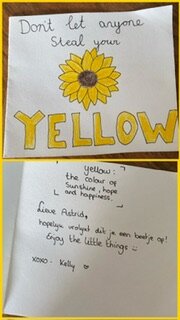 Don't let anyone
Steal your
YELLOW
yellow:
the colour of
Sunshine, hope
and happiness.
Lieve Astrid,
hopelijk vrolijkt dit je een beetje op!
Enjoy the little things
xoxo. Kelly